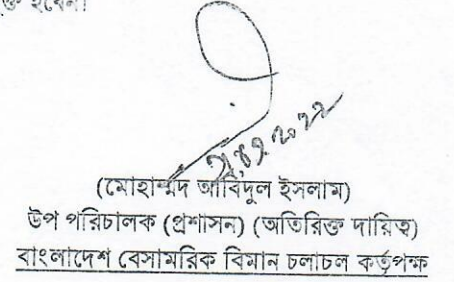 হবেন।
(মোহাম্মদ আবিদুল ইসলাম)
উপ পরিচালক (প্রশাসন) (অতিরিক্ত দায়িত্ব)
বাংলাদেশ বেসামরিক বিমান চলাচল কর্তৃপক্ষ